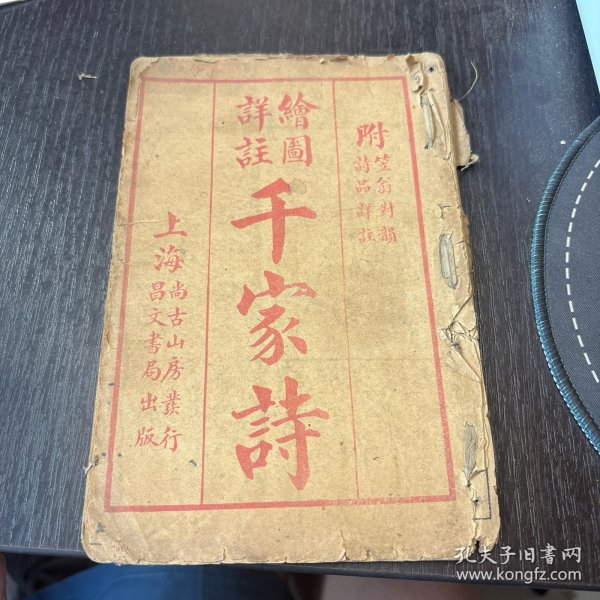 附笠翁對韻
詩品詳註
繪圖
詳註
千家詩
上海尚古山房發行
昌文書局出版
孔夫子旧書网
www.kongfz.com